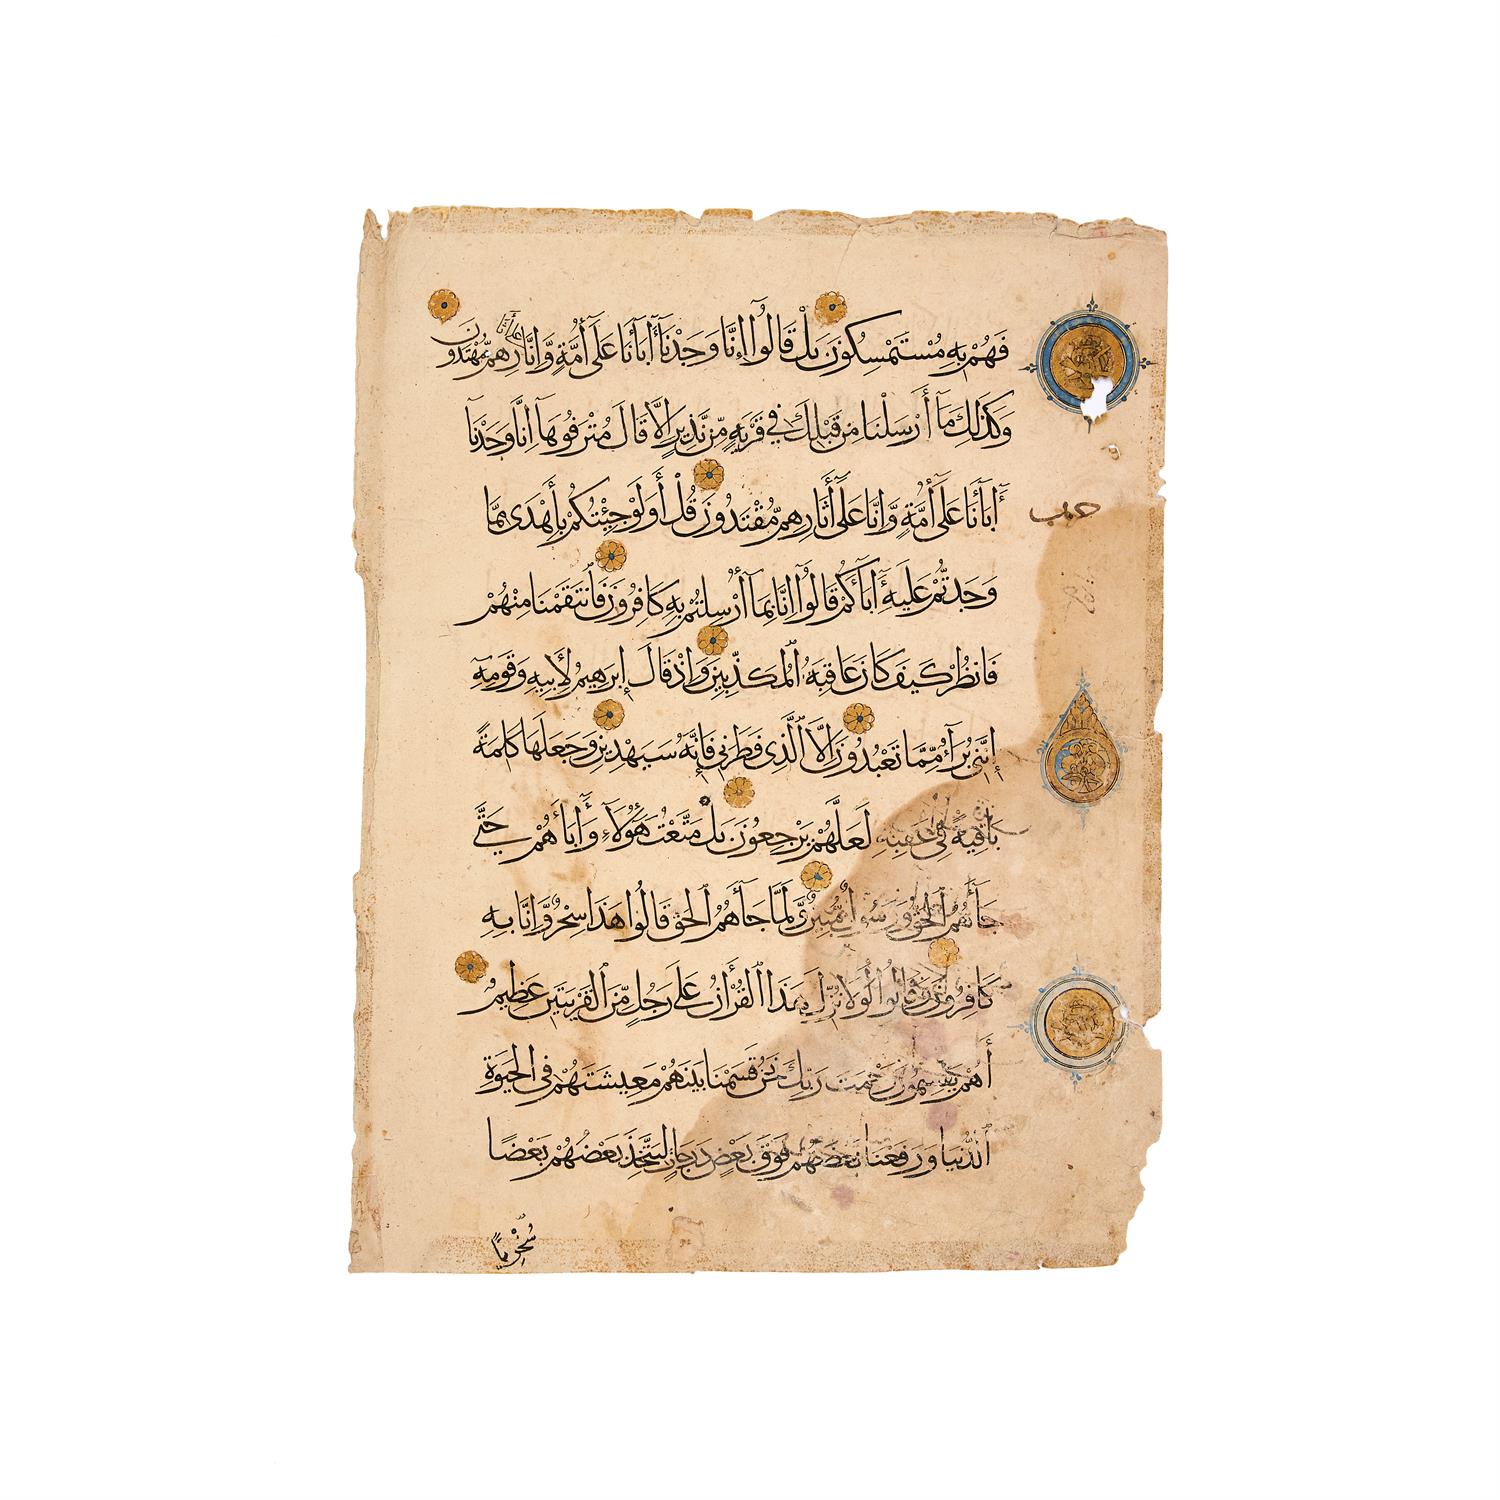 فَهُمْ بِهِ مُسْتَمْسِكُونَ بَلْ قَالُوا إِنَّا وَجَدْنَا آبَاءَنَا عَلَى أُمَّةٍ وَإِنَّا عَلَى آثَارِهِمْ مُهْتَدُونَ
وَكَذَلِكَ مَا أَرْسَلْنَا مِنْ قَبْلِكَ فِي قَرْيَةٍ مِنْ نَذِيرٍ إِلَّا قَالَ مُتْرَفُوهَا إِنَّا وَجَدْنَا
آبَاءَنَا عَلَى أُمَّةٍ وَإِنَّا عَلَى آثَارِهِمْ مُقْتَدُونَ قُلْ أَوَلَوْ جِئْتُكُمْ بِأَهْدَى مِمَّا
وَجَدْتُمْ عَلَيْهِ آبَاءَكُمْ قَالُوا إِنَّا بِمَا أُرْسِلْتُمْ بِهِ كَافِرُونَ فَانْتَقَمْنَا مِنْهُمْ
فَانْظُرْ كَيْفَ كَانَ عَاقِبَةُ الْمُكَذِّبِينَ وَإِذْ قَالَ إِبْرَهِيمُ لِأَبِيهِ وَقَوْمِهِ
إِنَّنِي بَرَاءٌ مِمَّا تَعْبُدُونَ إِلَّا الَّذِي فَطَرَنِي فَإِنَّهُ سَيَهْدِينِ وَجَعَلَهَا كَلِمَةً
بَاقِيَةً فِي عَقِبِهِ لَعَلَّهُمْ يَرْجِعُونَ بَلْ مَتَّعْتُ هَؤُلَاءِ وَآبَاءَهُمْ حَتَّى
جَاءَهُمُ الْحَقُّ وَرَسُولٌ مُبِينٌ وَلَمَّا جَاءَهُمُ الْحَقُّ قَالُوا هَذَا سِحْرٌ وَإِنَّا بِهِ
كَافِرُونَ وَقَالُوا لَوْلَا نُزِّلَ هَذَا الْقُرْآنُ عَلَى رَجُلٍ مِنَ الْقَرْيَتَيْنِ عَظِيمٍ
أَهُمْ يَقْسِمُونَ رَحْمَتَ رَبِّكَ نَحْنُ قَسَمْنَا بَيْنَهُمْ مَعِيشَتَهُمْ فِي الْحَيَوةِ
الدُّنْيَا وَرَفَعْنَا بَعْضَهُمْ فَوْقَ بَعْضٍ دَرَجَاتٍ لِيَتَّخِذَ بَعْضُهُمْ بَعْضًا
سُخْرِيًّا
حزب